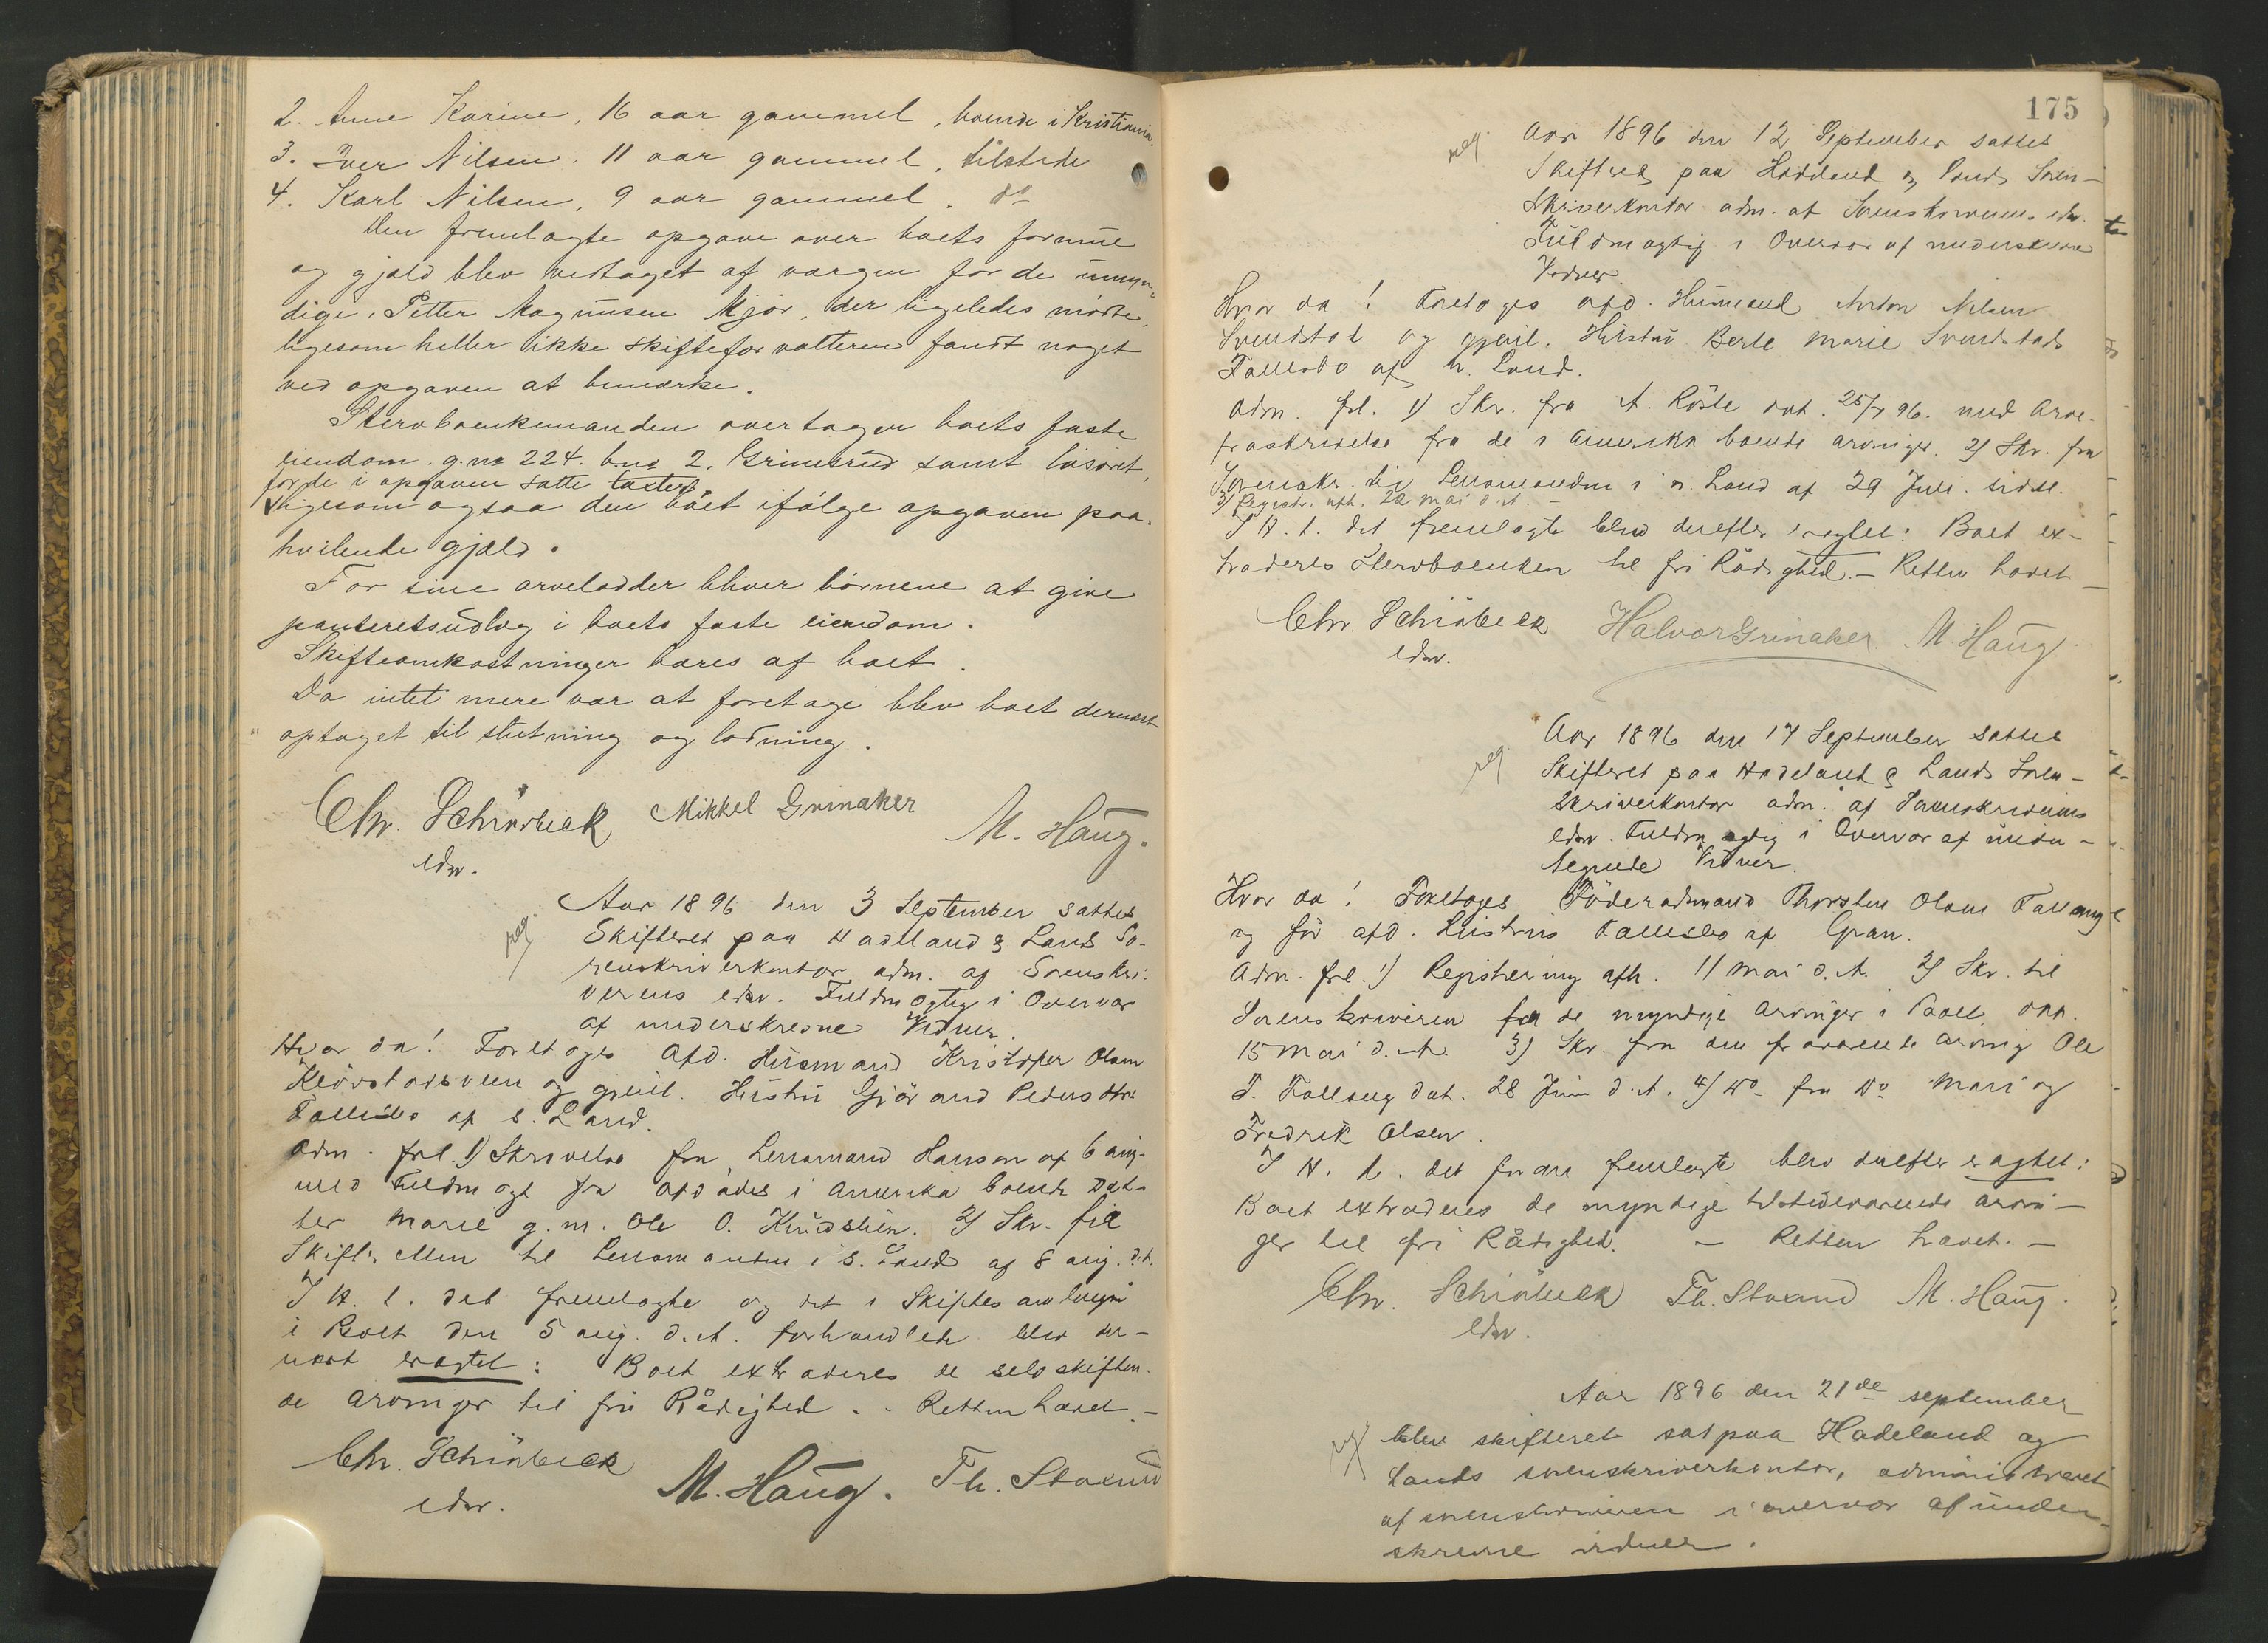 2. Anne Karine, 16 aar gammel, boende i Kristiania.
3. Iver Nilsen, 11 aar gammel, tilstede
4. Karl Nilsen, 9 aar gammel. do
Den fremlagte opgave over boets formue
og gjæld blev vedtaget af værgen for de umyn-
dige, Petter Magnusen Mjør, der ligeledes mødte,
ligesom heller ikke skifteforvalteren fandt noget
ved opgaven at bemærke.
Stervboenkemanden overtager boets faste
eiendom g.no 224. b.no 2, Grinerud samt løsøret,
for de i opgaven satte taxter,
ligesom ogsaa den boet ifølge opgaven paa-
hvilende gjæld.
For sine arvelodder bliver børnene at give
panteretsudlæg i boets faste eiendom.
Skifteomkostninger bæres af boet.
Da intet mere var at foretage blev boet dernæst
optaget til slutning og lodning.
Chr. Schiøbeck Mikkel Grinaker M. Haug.
edsv.
reg. Aar 1896 den 3 September sattes
Skifteret paa Hadeland & Lands So-
renskriverkontor adm. af Sorenskri-
verens edsv. Fuldmægtig i Overvær
af underskrevne Vidner.
Hvor da! Foretoges Afd. Husmand Kristofer Olsen
Kløvstadsveen og gjenl. Hustru Gjørand Pedersdtr
Fællesbo af s. Land.
Adm. frl. 1) Skrivelse fra Lensmand Hanson af 6 aug.
med Fuldmagt fra Afdødes i Amerika boende Dat-
ter Marie g.m. Ole O. Knudslien. 2) Skr. fra
Skifteretten til Lensmanden i s. Land af 8 aug. d.A.
I H. t. det fremlagte og det i Skiftesamlingen
i Boet den 5 aug. d.A. forhandlede blev der-
næst eragtet: Boet extraderes de selvskiften-
de arvinger til fri Rådighed. - Retten hævet.-
Chr. Schiøbeck M. Haug. Th. Strand
edsv.
175
reg. Aar 1896 den 12 September sattes
Skifteret paa Hadeland & Lands Soren-
skriverkontor adm. af Sorenskriverens edsv.
Fuldmægtig i Overvær af underskrevne
Vidner.
Hvor da! Foretoges Afd. Husmand Anton Nilsen
Svendstad og gjenl. Hustru Berte Marie Svendstads
Fællesbo af n. Land.
Adm. frl. 1) Skr. fra A. Røste dat. 25/7 96. med Arve-
fraskrivelse fra de i Amerika boende arvinger. 2) Skr. fra
Sorenskr. til Lensmanden i n. Land af 29 Juli sidstl.
3) Registr. afh. 22 mai d.A. -
I H. t. det fremlagte blev derefter eragtet: Boet ex-
traderes Stervboenken til fri Rådighed. - Retten hævet -
Chr. Schiøbeck Halvor Grinaker. M. Haug.
edsv.
reg. Aar 1896 den 17 September sattes
Skifteret paa Hadeland & Lands Soren-
skriverkontor adm. af Sorenskriverens
edsv. Fuldmægtig i Overvær af under-
tegnede Vidner.
Hvor da! Foretoges Føderådsmand Thorsten Olsen Fallang
og før afd. Hustrus Fællesbo af Gran.
Adm. frl. 1) Registrering afh. 11 mai d.A. 2) Skr. til
Sorenskriveren fra de myndige arvinger i Boet dat.
15 mai d.A. 3) Skr. fra den fraværende arving Ole
T. Fallang dat. 28 Juni d.A. 4) Do fra Do Mari og
Fredrik Olsen.
I H. t. det foran fremlagte blev derefter eragtet:
Boet extraderes de myndige tilstedeværende arvin-
ger til fri Rådighed. - Retten hævet. -
Chr. Schiøbeck Th. Strand M. Haug.
edsv.
Aar 1896 den 21de september
reg blev skifteret sat paa Hadeland og
Lands sorenskriverkontor, administreret
af sorenskriveren i overvær af under-
skrevne vidner.